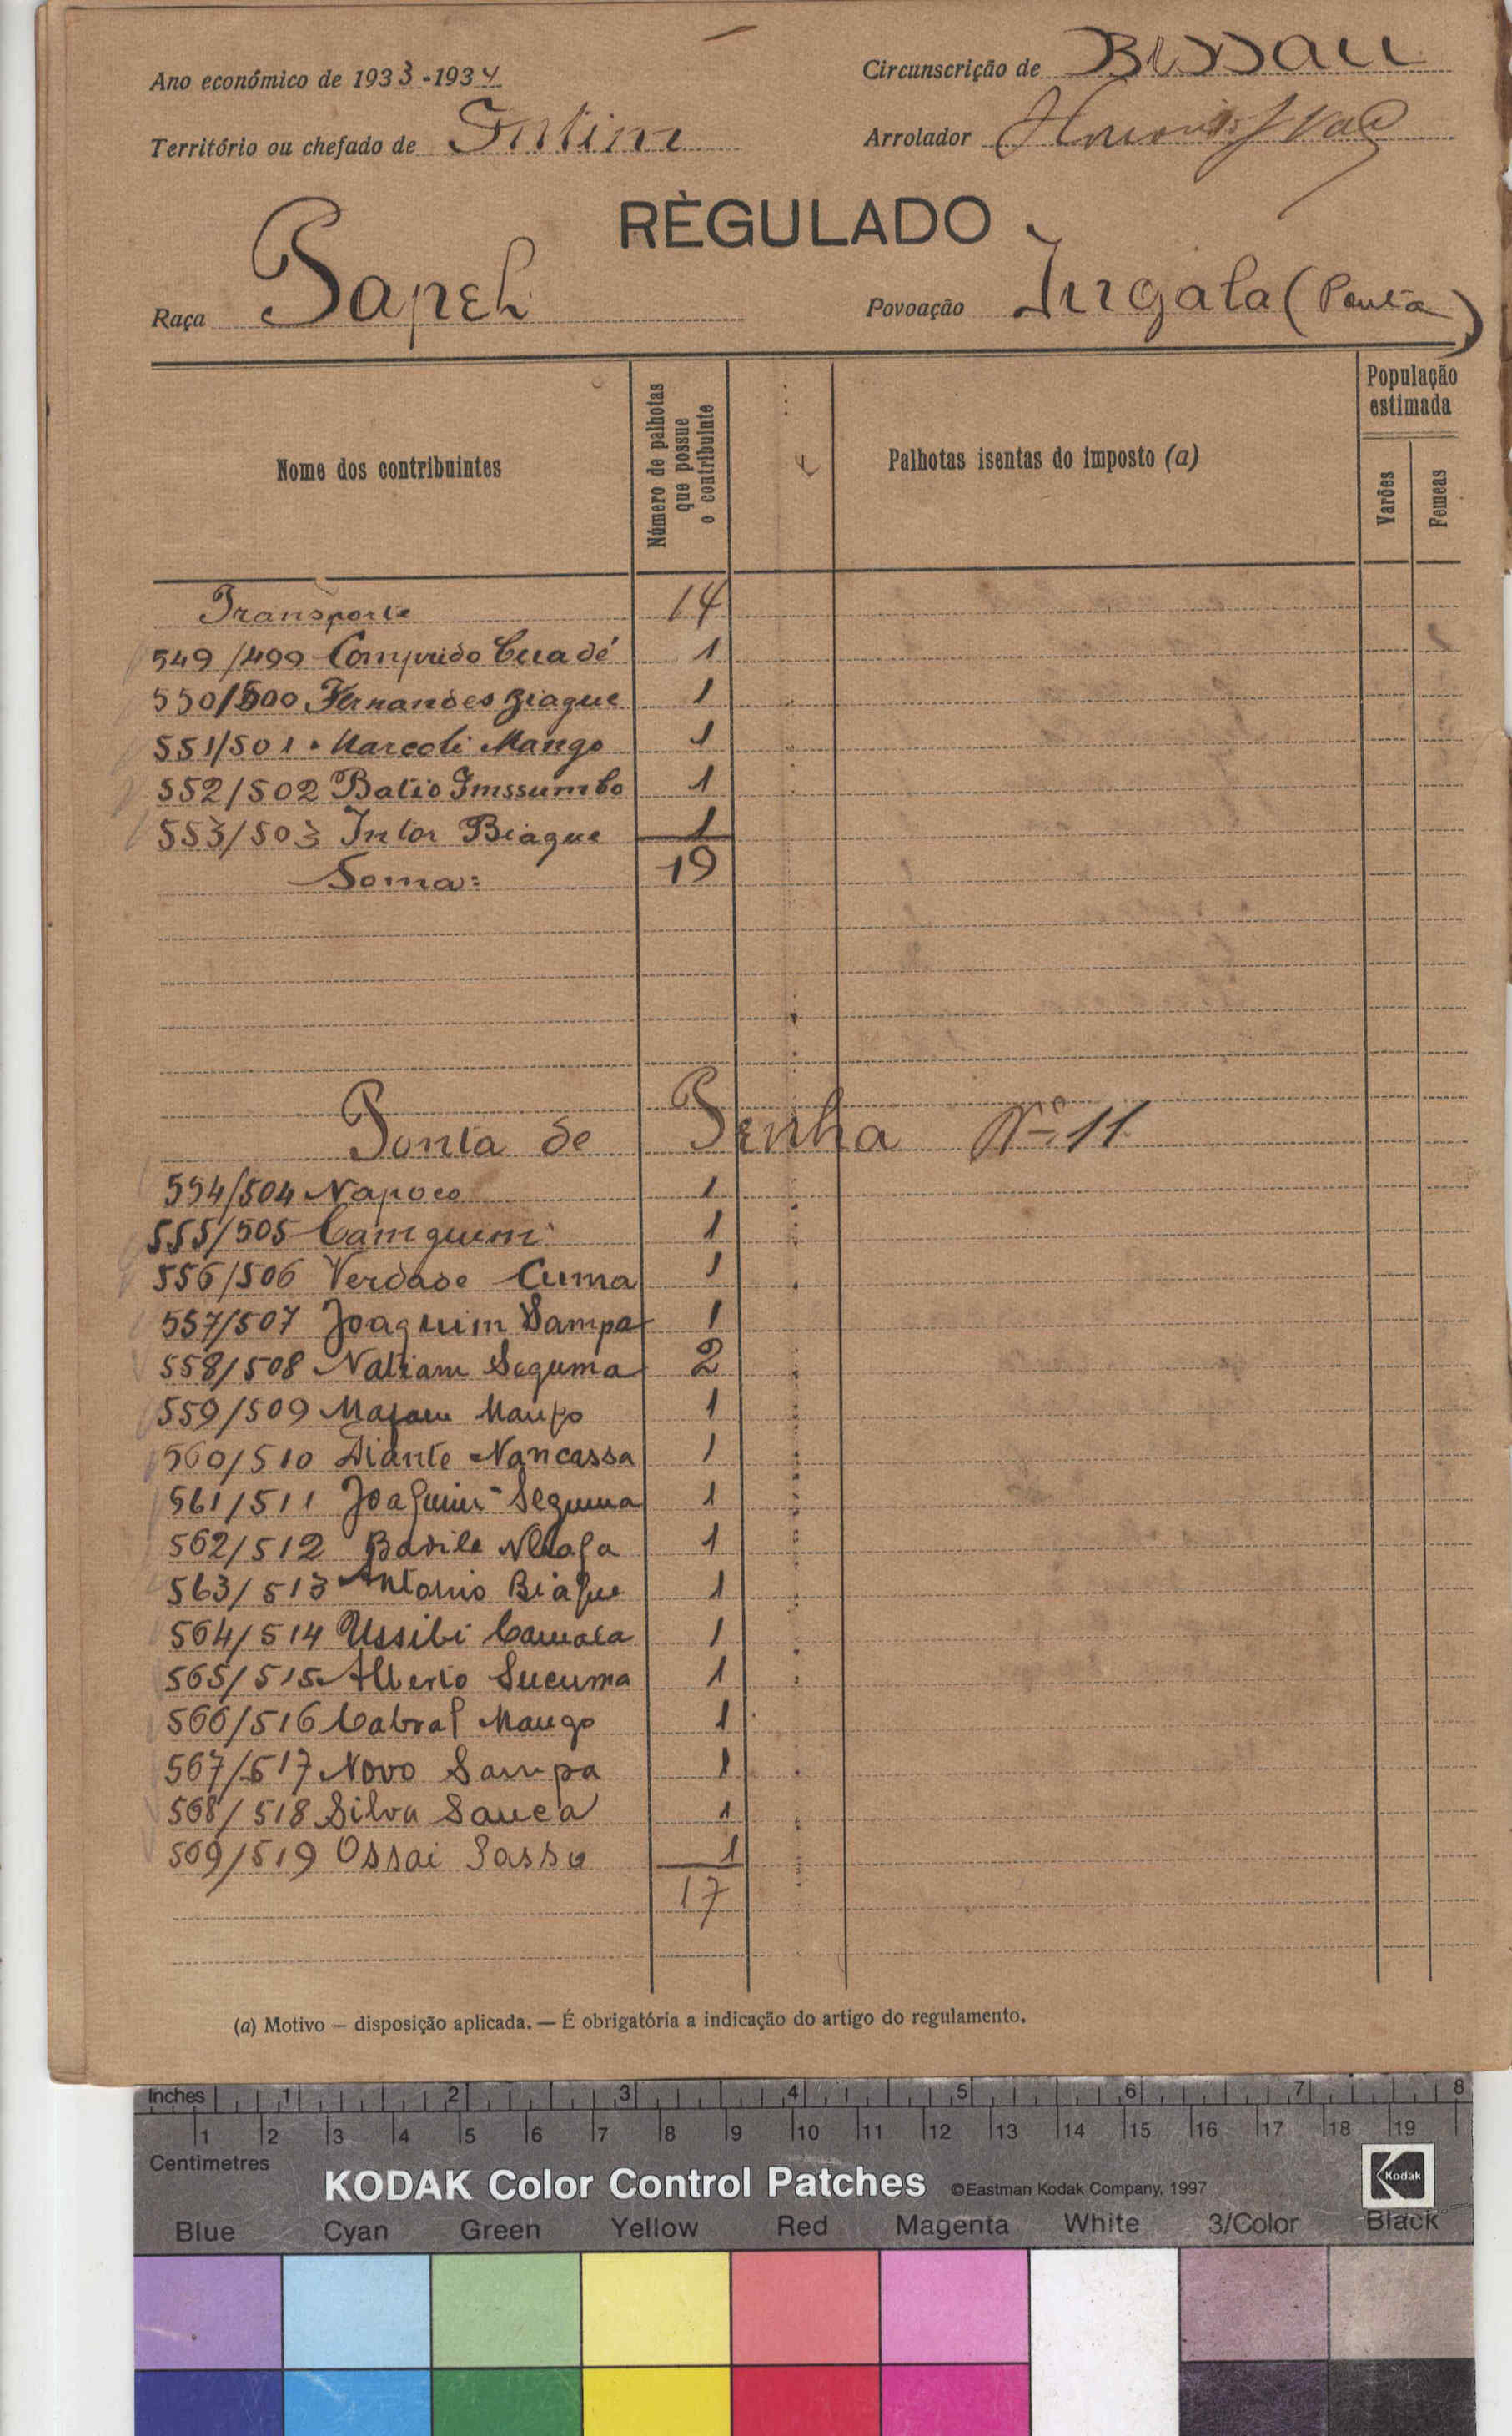 Ano económico de 1933-1934
Circunscrição de Bissau
Território ou chefado de Intim
Arrolador
RÈGULADO
Raça Papel
Povoação Ingala (Ponta)
Nome dos contribuintes
Número de palhotas que possue o contribuinte
Palhotas isentas do imposto (a)
População estimada
Varões
Femeas
Transporte 14
549/499 Comprido Cuadé 1
550/500 Fernandes Biague 1
551/501 Marcoli Mango 1
552/502 Batio Imssumbo 1
553/503 Intor Biague 1
Soma: 19
Ponta de Penha Nº 11
554/504 Napoco 1
555/505 Camquim 1
556/506 Verdade Cuma 1
557/507 Joaquim Sampa 1
558/508 Natiam Seguma 2
559/509 Mango 1
560/510 Diante Nancassa 1
561/511 Joaquim Seguma 1
562/512 Basile 1
563/513 Antonio Biague 1
564/514 Ussibi Camala 1
565/515 Alberto Sucuma 1
566/516 Cabral Mango 1
567/517 Novo Sampa 1
568/518 Silva Sanca 1
569/519 Ossai Sasso 1
17
(a) Motivo — disposição aplicada. — É obrigatória a indicação do artigo do regulamento.
Inches 1 2 3 4 5 6 7 8
1 2 3 4 5 6 7 8 9 10 11 12 13 14 15 16 17 18 19
Centimetres
KODAK Color Control Patches ©Eastman Kodak Company, 1997 Kodak
Blue Cyan Green Yellow Red Magenta White 3/Color Black